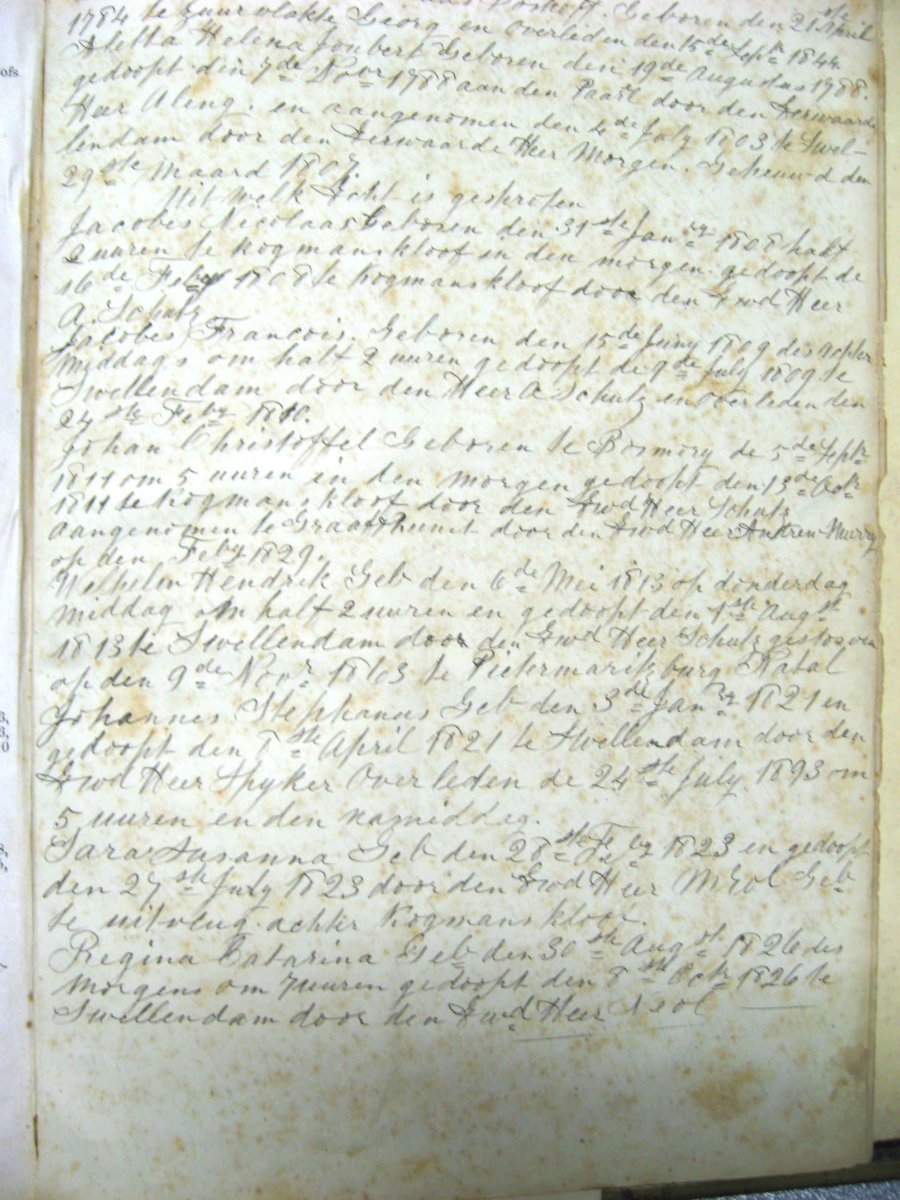 Boshoff. Geboren den 21ste April
1784 te zuurvlakte Georg en overleden den 15de Sept 1844
Aletta Helena Joubert Geboren den 19de Augustus 1788.
gedoopt den 7de Novr 1788 aan den Paarl door den Eerwaarde
Heer Aling. en aangenomen den 4de July 1803 te Swel-
lendam door den Eerwaarde Heer Morgen. Gehuwd den
29ste Maard 1807.
Uit welk Echt is gesproten
Jacobes Nicolaas Geboren den 31ste Janry 1808 half
2 uuren te kogmanskloof in den morgen. gedoopt de
16de Feby 1808 te kogmanskloof door den Ewd Heer
A. Schutz
Jacobes Francois. Geboren den 15de Juny 1809 des achter
middags om half 2 uuren gedoopt de 9de July 1809 te
Swellendam door den Heer A Schutz en overleden den
24ste Feby 1810.
Johan Christoffel Geboren te Bosmory de 5de Septr
1811 om 5 uuren in den morgen gedoopt den 13de Octr
1811 te kogmanskloof door den Ewd Heer Schutz
aangenomen te Graaffrunit door den Ewd Heer Andrew Murry
op den Feby 1829.
Welhelm Hendrik Geb den 6de Mei 1813 op donderdag
middag om half 2 uuren en gedoopt den 1ste Augst
1813 te Swellendam door den Ewd Heer Schutz gestorven
op den 9de Novr 1863 te Pietermaritzburg Natal
Johannes Stephanus Geb den 3de Janry 1821 en
gedoopt den 8ste April 1821 te Swellendam door den
Ewd Heer Spyker Overleden de 24ste July 1893 om
5 uuren en den nagmiddeg.
Sara Susanna Geb den 28ste Feby 1823 en gedoopt
den 27ste July 1823 door den Ewd Heer Geb
te uitvlug achter Kogmanskloof.
Regina Catarina Geb den 30ste Augst 1826 des
morgens om 7 uuren gedoopt den 8ste Octr 1826 te
Swellendam door den Ewd Heer